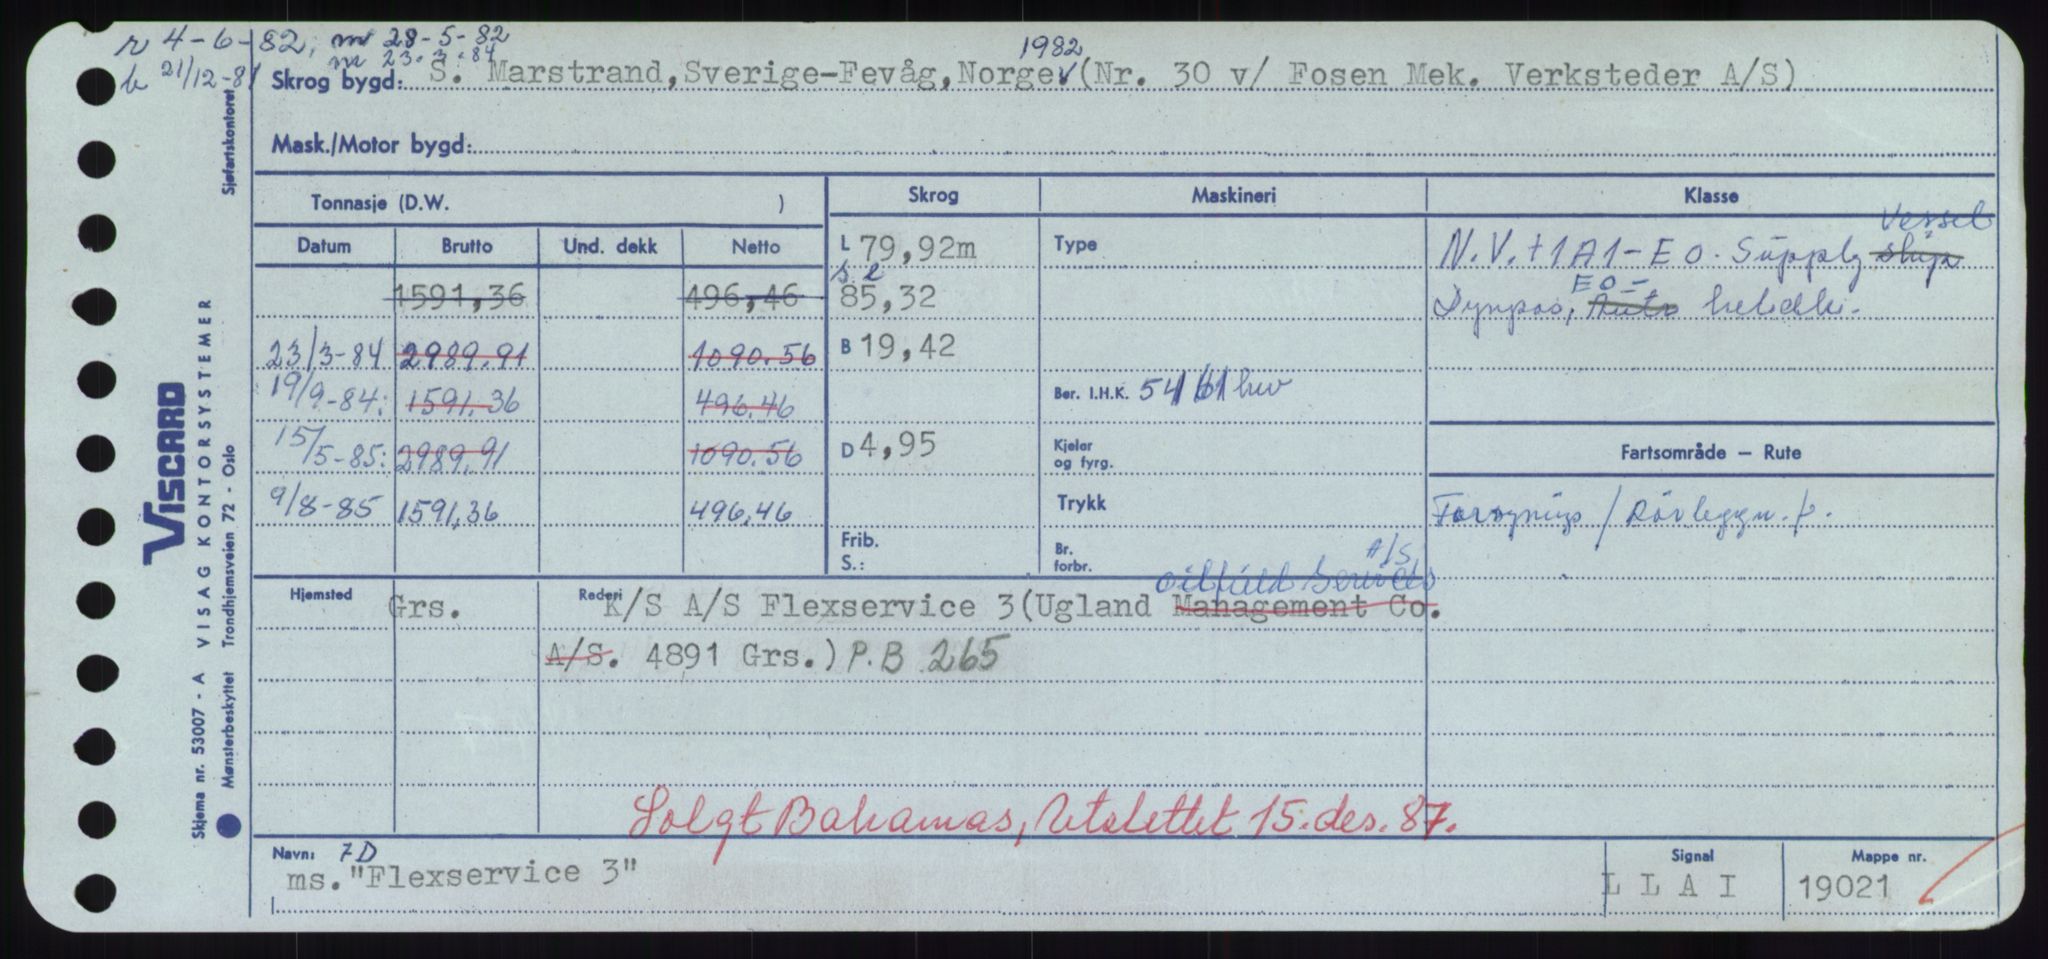 r 4-6-82, m 28-5-82
m 23.3.84
b 21/12-81
1982
Skrog bygd: S. Marstrand, Sverige-Fevåg, Norge. (Nr. 30 v/ Fosen Mek. Verksteder A/S)
Mask./Motor bygd:
Tonnasje (D.W. ) Skrog Maskineri Klasse
Datum Brutto Und. dekk Netto
L 79,92m Type
N.V. + 1A1-EO. Supply ship Vessel
1591,36 496,46 85,32
Dynpos, Auto EO- helidk.
23/3-84 2989.91 1090.56 B 19,42
19/9-84: 1591.36 496.46 Ber. I.H.K.
15/5-85: 2989.91 1090.56 D 4,95 Kjeler og fyrg.
Fartsområde — Rute
9/8-85 1591,36 496,46 Trykk
Forsynings / Rörleggn.
Frib.
S.:
Br. forbr.
Oilfield Services A/S
Hjemsted Grs. Rederi K/S A/S Flexservice 3(Ugland Management Co.
A/S. 4891 Grs.) P.B 265
Solgt Bahamas, Utslettet 15. des. 87.
Navn: 7D
ms."Flexservice 3"
Signal
L L A I
Mappe nr.
19021
Skjema nr. 53007 - A VISAG KONTORSYSTEMER
Mønsterbeskyttet Trondhjemsveien 72 - Oslo Sjøfartskontoret
VISCARD